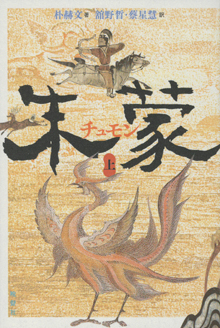 朴赫文 著 舘野晳・蔡星慧 訳
朱蒙
チュモン
上